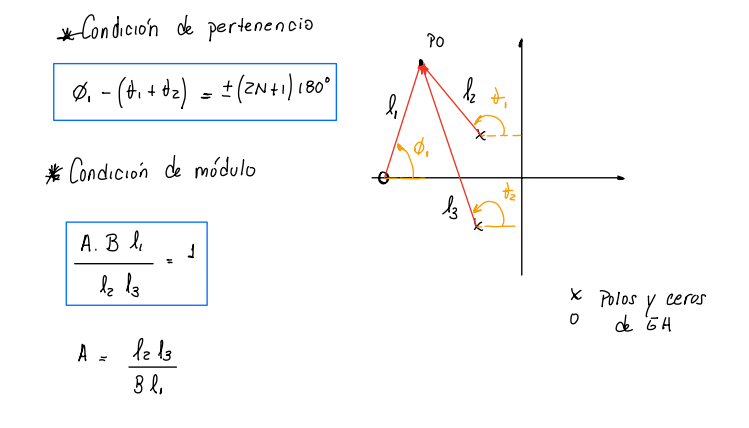 * Condición de pertenencia
ϕ₁ - (θ₁ + θ₂) = ±(2N+1)180°
* Condición de módulo
A. B l₁ / l₂ l₃ = 1
A = l₂ l₃ / B l₁
PO
l₁
l₂
θ₁
ϕ₁
l₃
θ₂
x Polos y ceros
o de GH